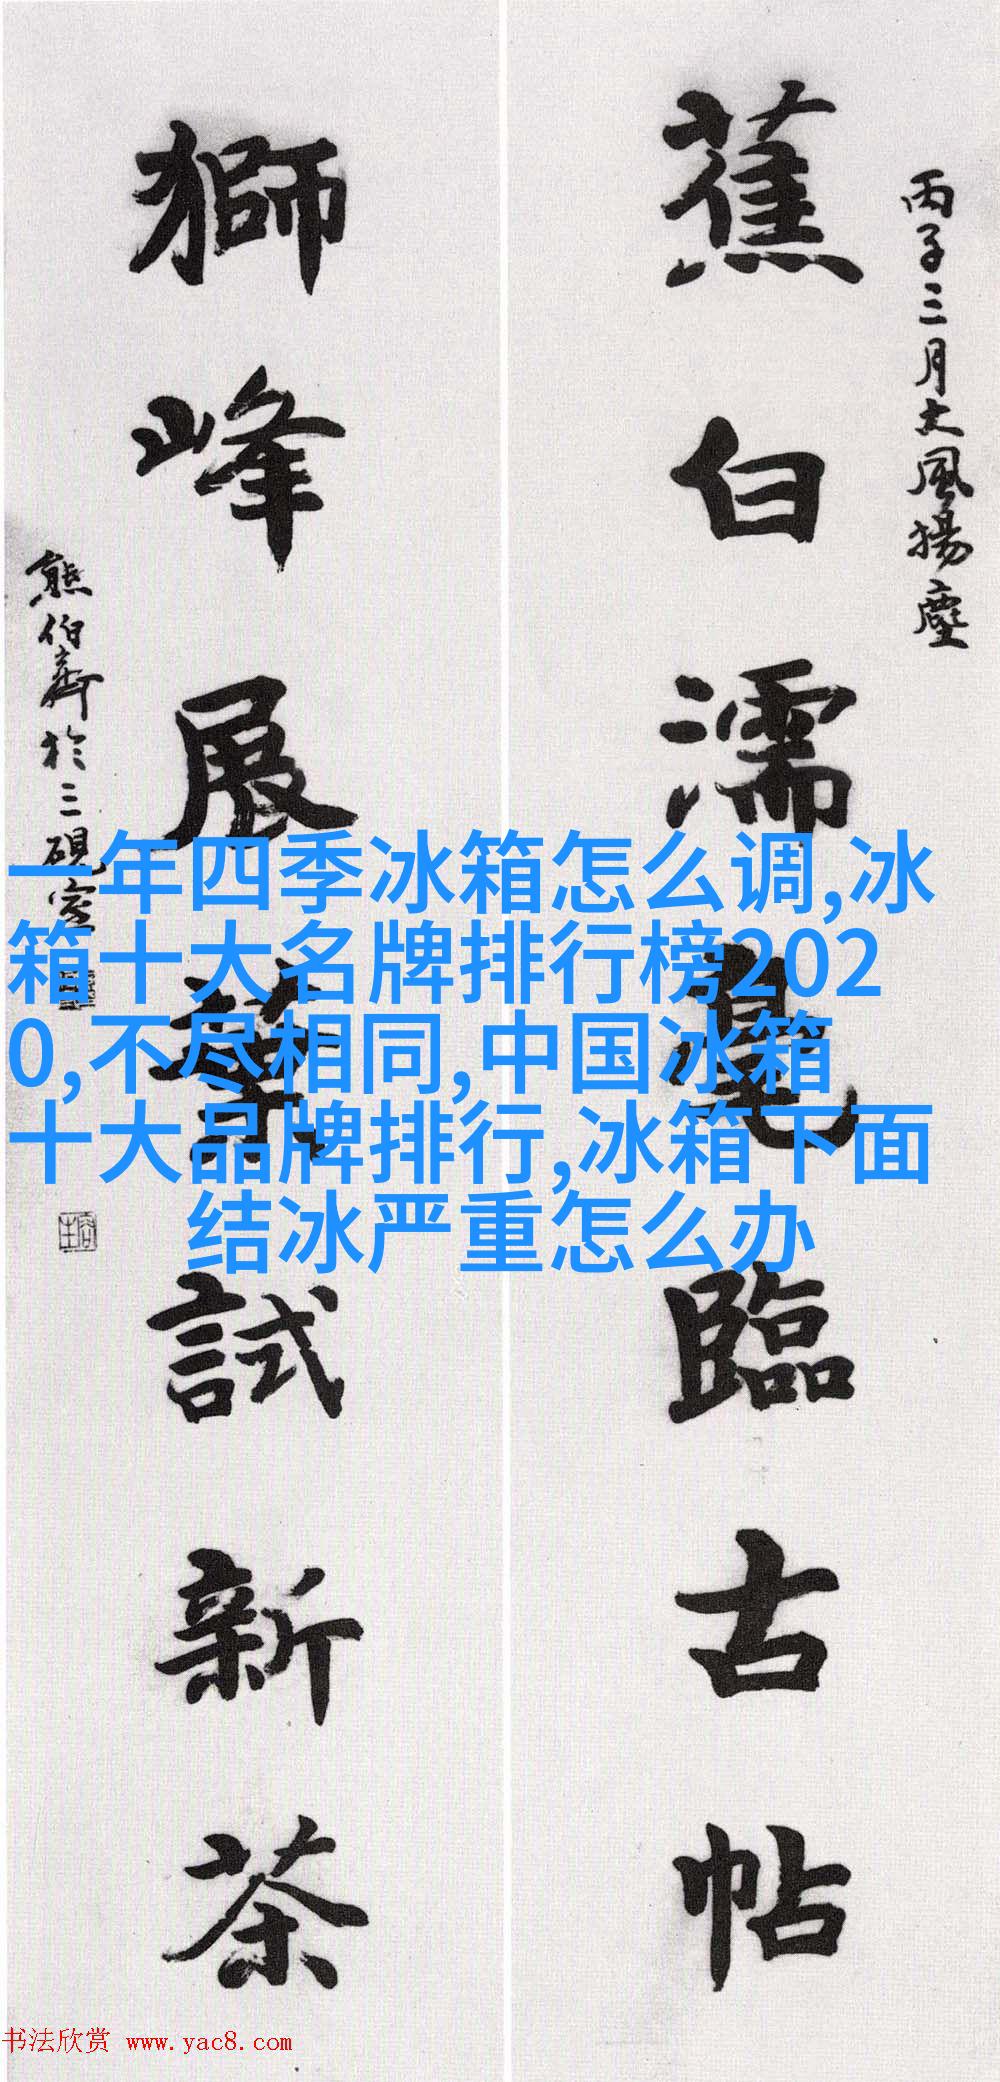 丙子三月大風揚塵
蕉白濡毫臨古帖
獅峰展葉試新茶
熊伯齊於三硯室
一年四季冰箱怎么调,冰
箱十大名牌排行榜202
0,不尽相同,中国冰箱
十大品牌排行,冰箱下面
结冰严重怎么办
书法欣赏 www.yac8.com